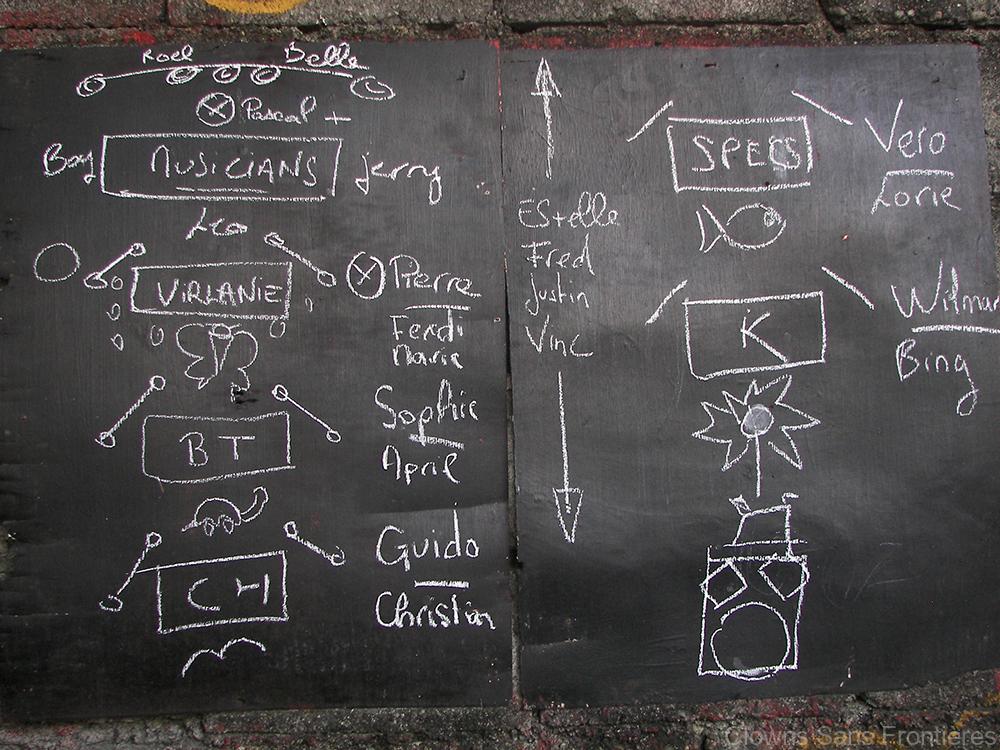 Roel Belle
Pascal +
Boy MUSICIANS jerry
Leo
VIRLANIE Pierre
Ferdi
Marie
BT Sophie
April
CH Guido
Christian
EStelle
Fred
justin
Vinc
SPECS Vero
Lorie
K Wilmar
Bing
Clowns Sans Frontieres